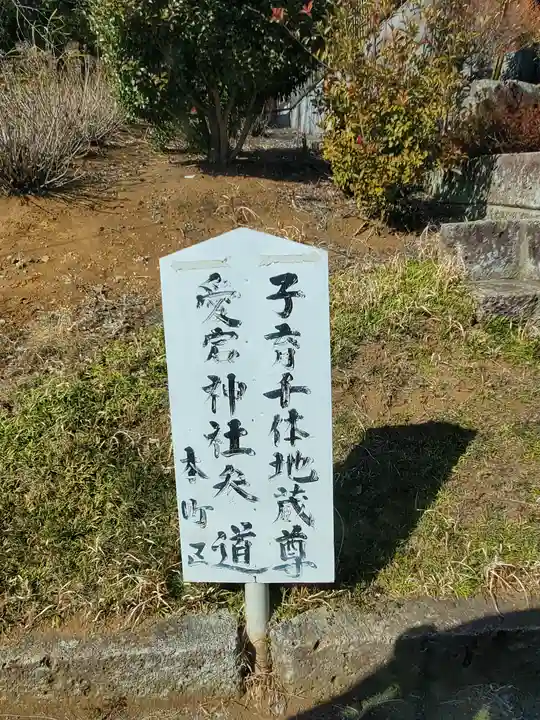 子育千体地蔵尊
愛宕神社参道
本町区